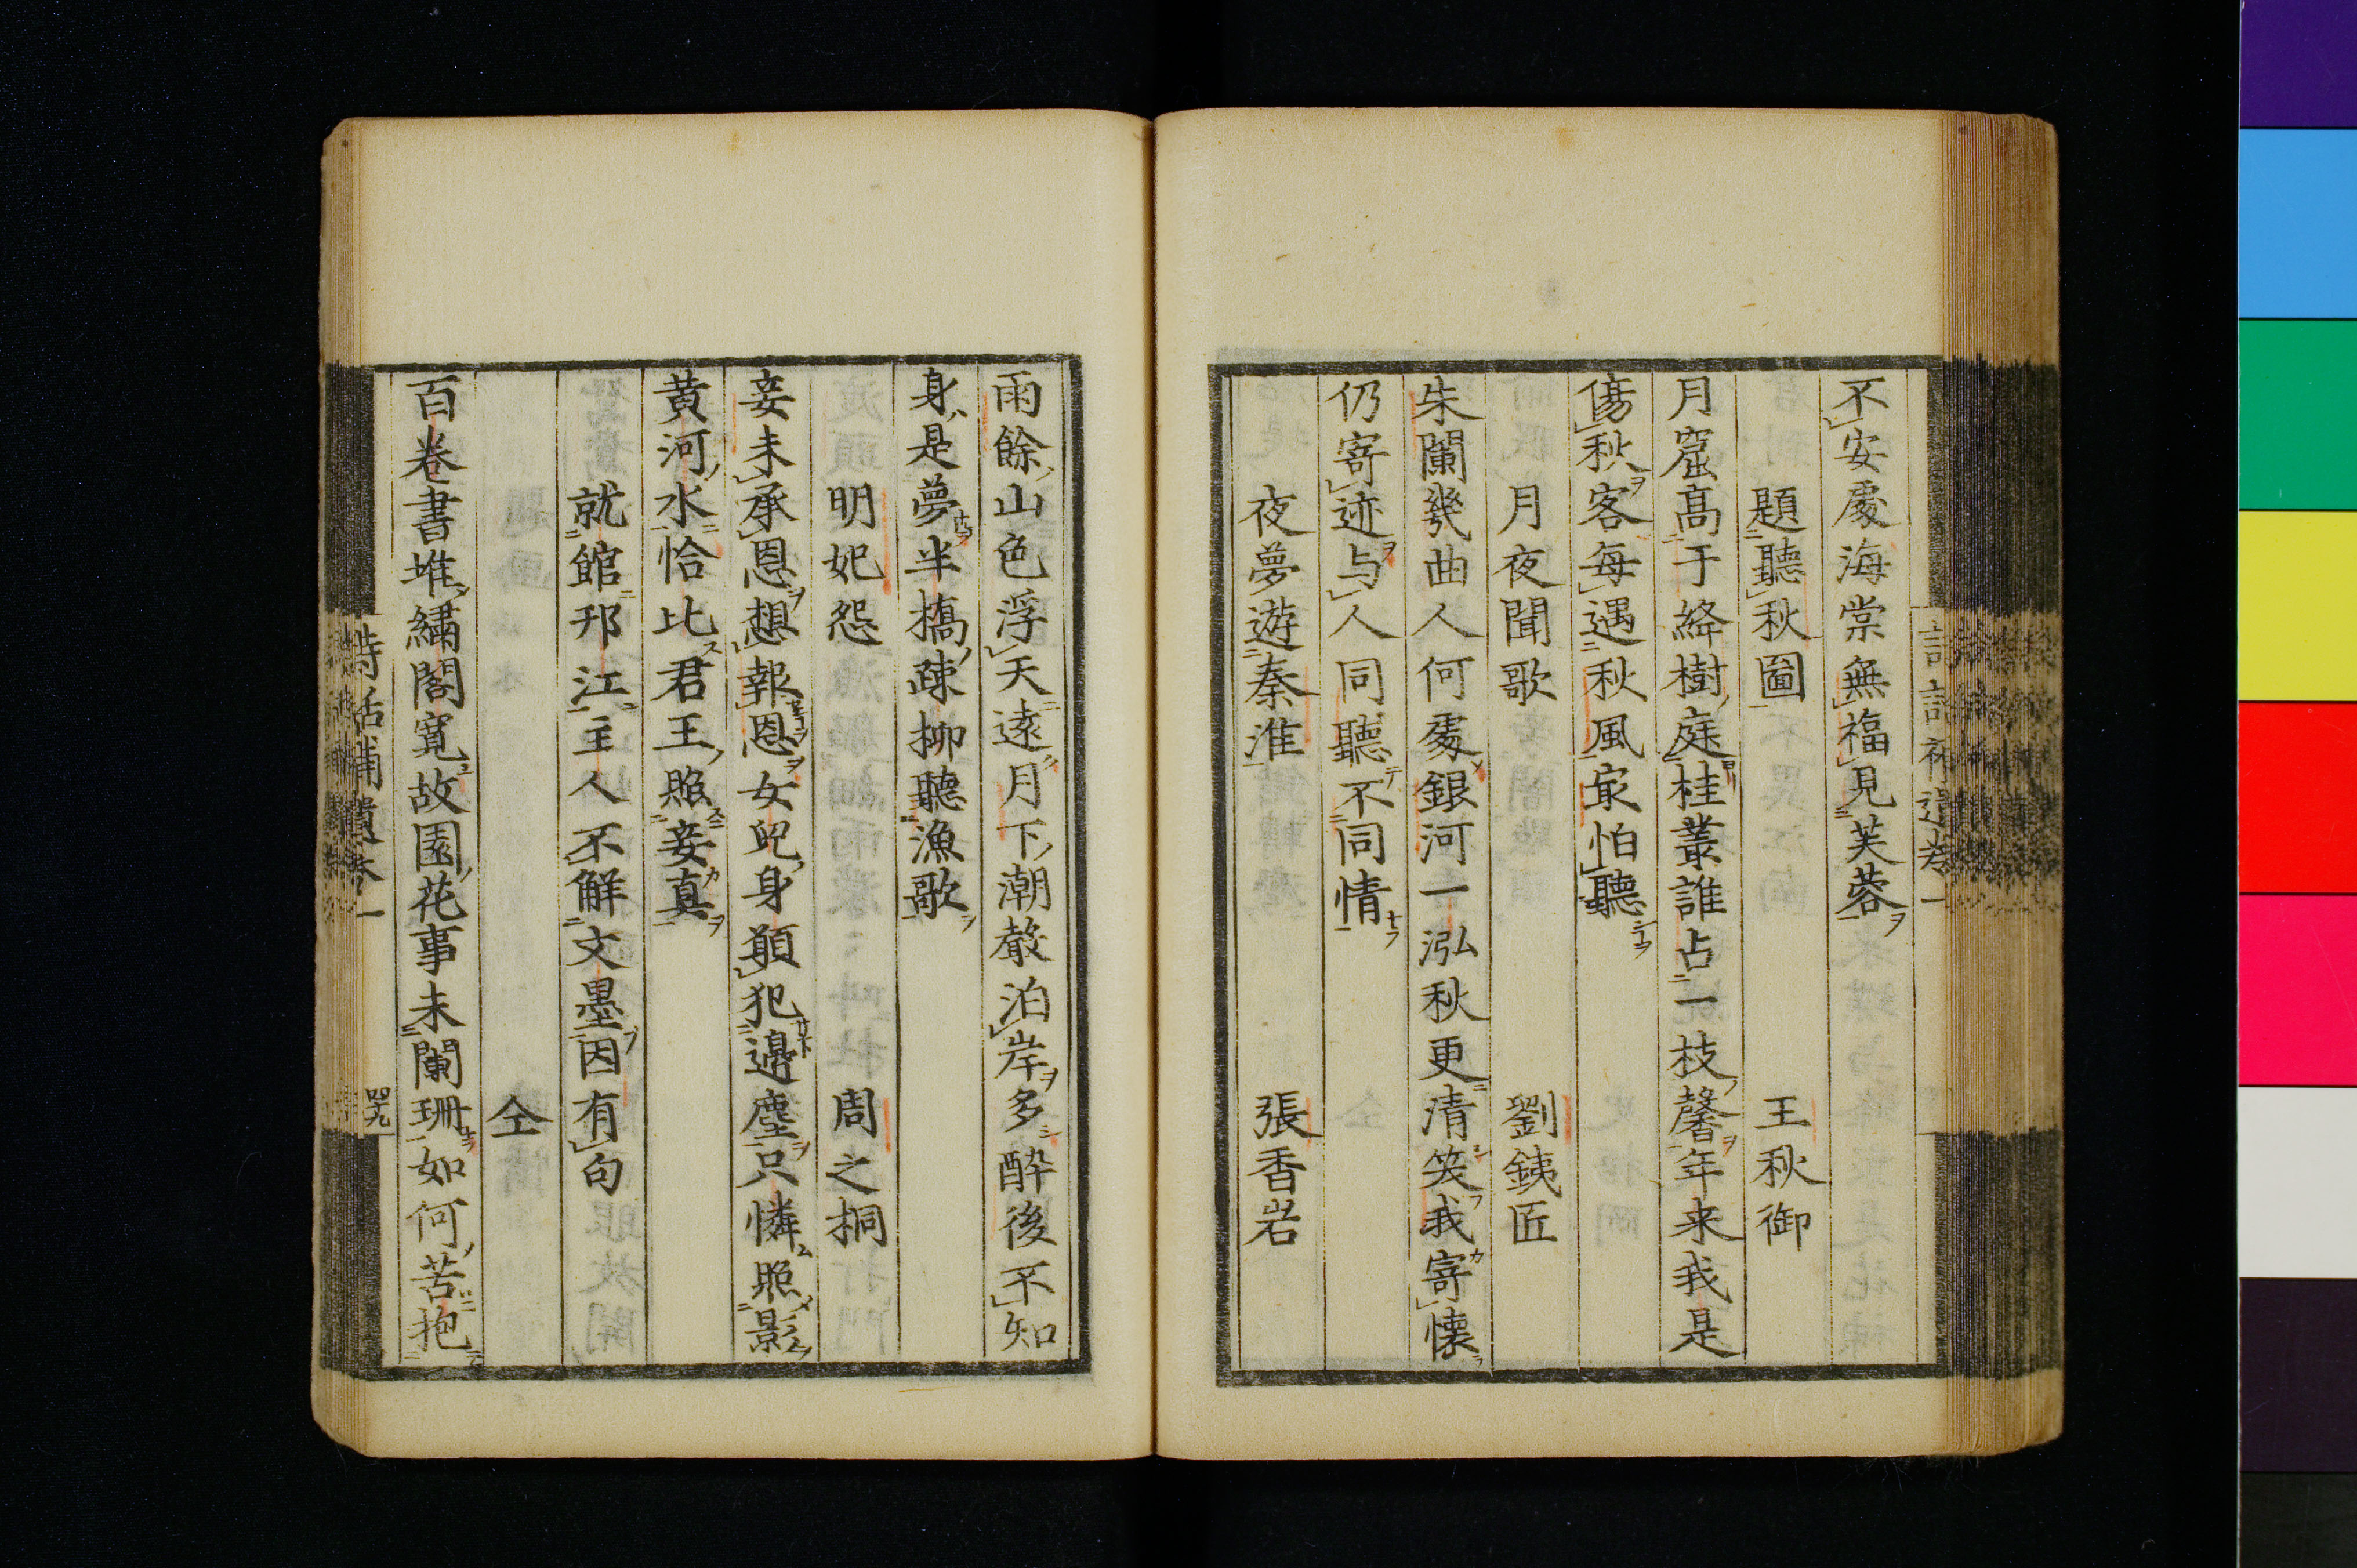 不安處海棠無福見芙蓉
題聽秋圖 王秋御
月窟高于絳樹庭桂叢誰占一枝馨年来我是
傷秋客每遇秋風㝡怕聽
月夜聞歌 劉銕匠
朱闌幾曲人何處銀河一泓秋更清笑我寄懷
仍寄迹与人同聽不同情
夜夢遊秦淮 張香岩
雨餘山色浮天遠月下潮聲泊岸多酔後不知
身是夢半橋疎柳聽漁歌
明妃怨 周之桐
妾未承恩想報恩女兒身願犯邊塵只憐照影
黄河水恰比君王照妾真
就館邗江主人不解文墨因有句
仝
百卷書堆繡閣寛故園花事未闌珊如何苦抱
詩話補遺卷一
四十九